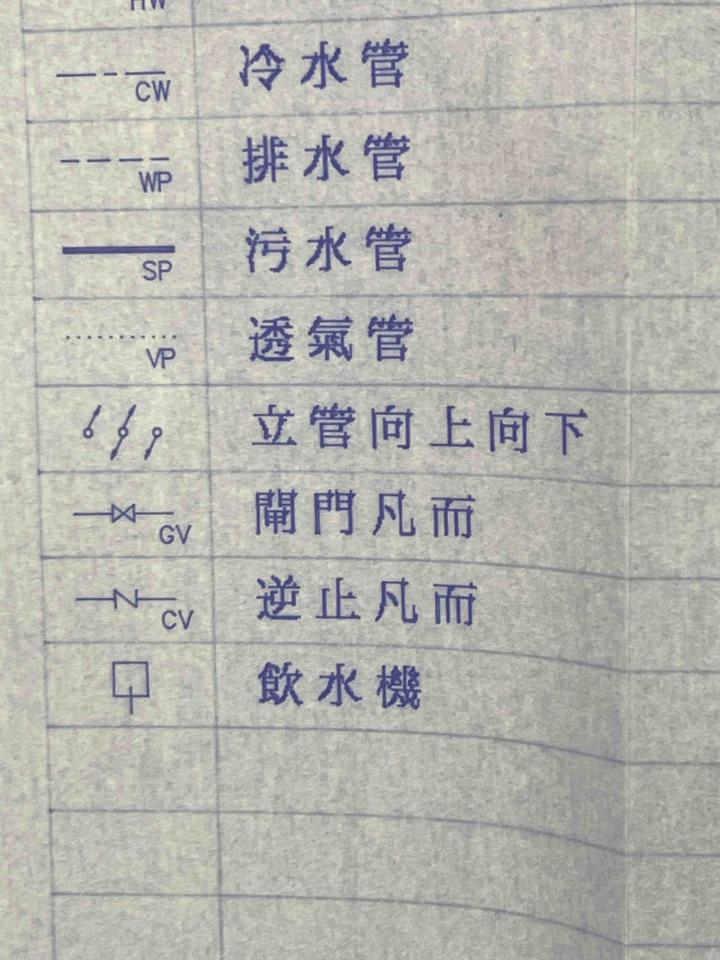 HW
CW 冷水管
WP 排水管
SP 污水管
VP 透氣管
立管向上向下
GV 閘門凡而
CV 逆止凡而
飲水機